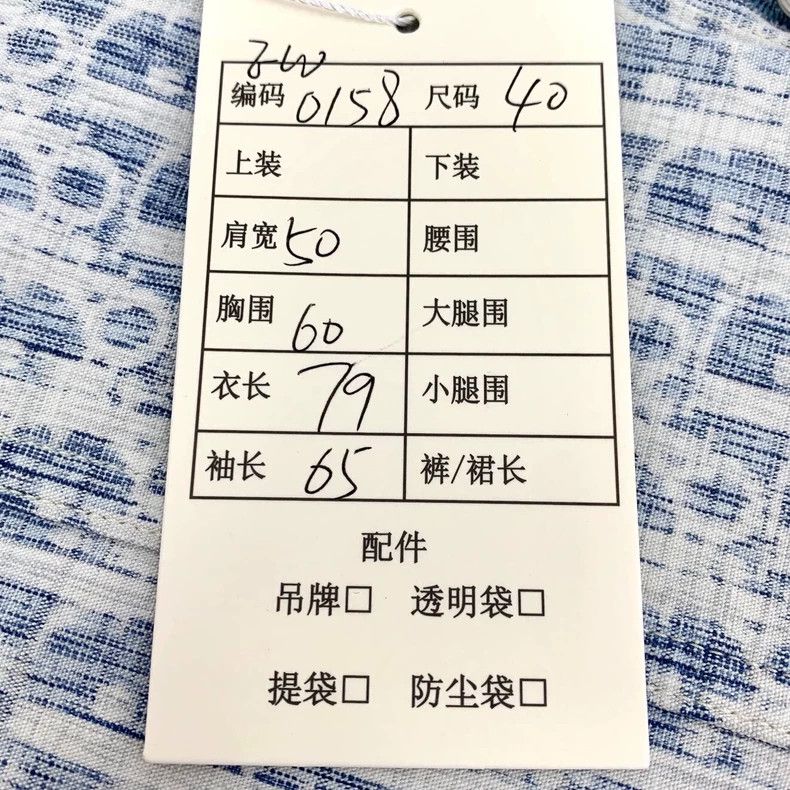 ZW
编码 0158 尺码 40
上装 下装
肩宽 50 腰围
胸围 60 大腿围
衣长 79 小腿围
袖长 65 裤/裙长
配件
吊牌□ 透明袋□
提袋□ 防尘袋□